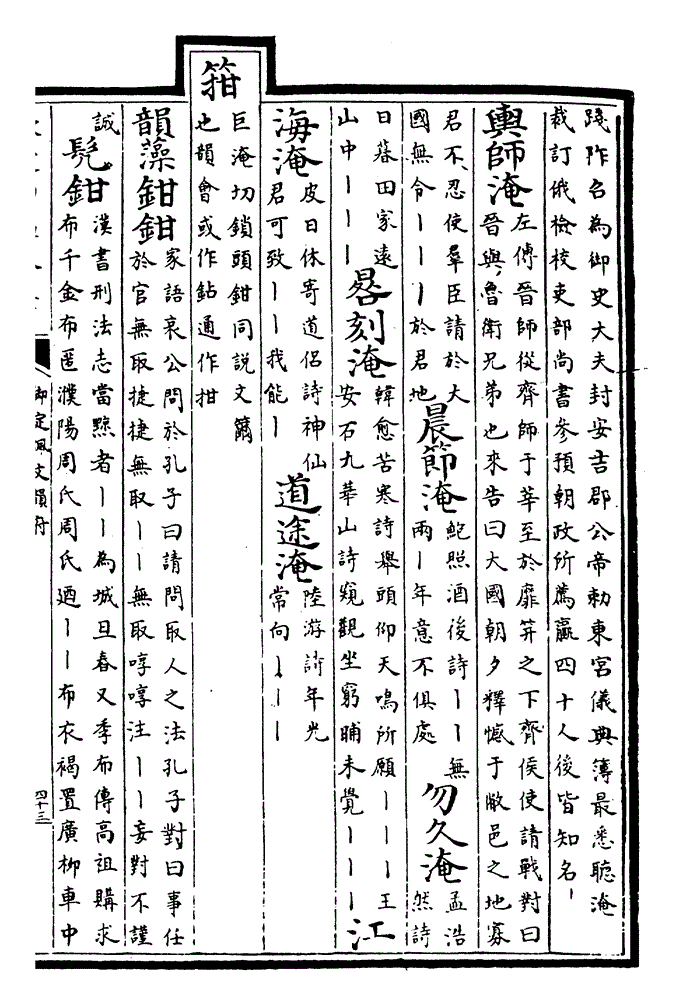 踐阼名為御史大夫封安吉郡公帝勅東宫儀典簿最悉聽淹
裁訂俄檢校吏部尚書參預朝政所薦贏四十人後皆知名丨
輿師淹
左傳晉師從齊師于莘至於靡笄之下齊侯使請戰對曰
晉與魯衛兄弟也來告曰大國朝夕釋憾于敝邑之地寡
君不忍使羣臣請於大
國無令丨丨丨於君地
晨節淹
鮑照酒後詩丨丨無
兩丨年意不俱處
勿久淹
孟浩
然詩
日暮田家遠
山中丨丨丨
晷刻淹
韓愈苦寒詩舉頭仰天鳴所願丨丨丨王
安石九華山詩窺觀坐窮晡未覺丨丨丨
江
海淹
皮日休寄道侣詩神仙
君可致丨丨我能丨
道途淹
陸游詩年光
常向丨丨丨
箝
巨淹切鎖頭鉗同説文籋
也韻會或作鉆通作拑
韻藻
鉗鉗
家語哀公問於孔子曰請問取人之法孔子對曰事任
於官無取捷捷無取丨丨無取啍啍注丨丨妄對不謹
誠
髠鉗
漢書刑法志當黥者丨丨為城旦舂又季布傳高祖購求
布千金布匿濮陽周氏周氏廼丨丨布衣褐置廣柳車中
御定佩文韻府
四十三